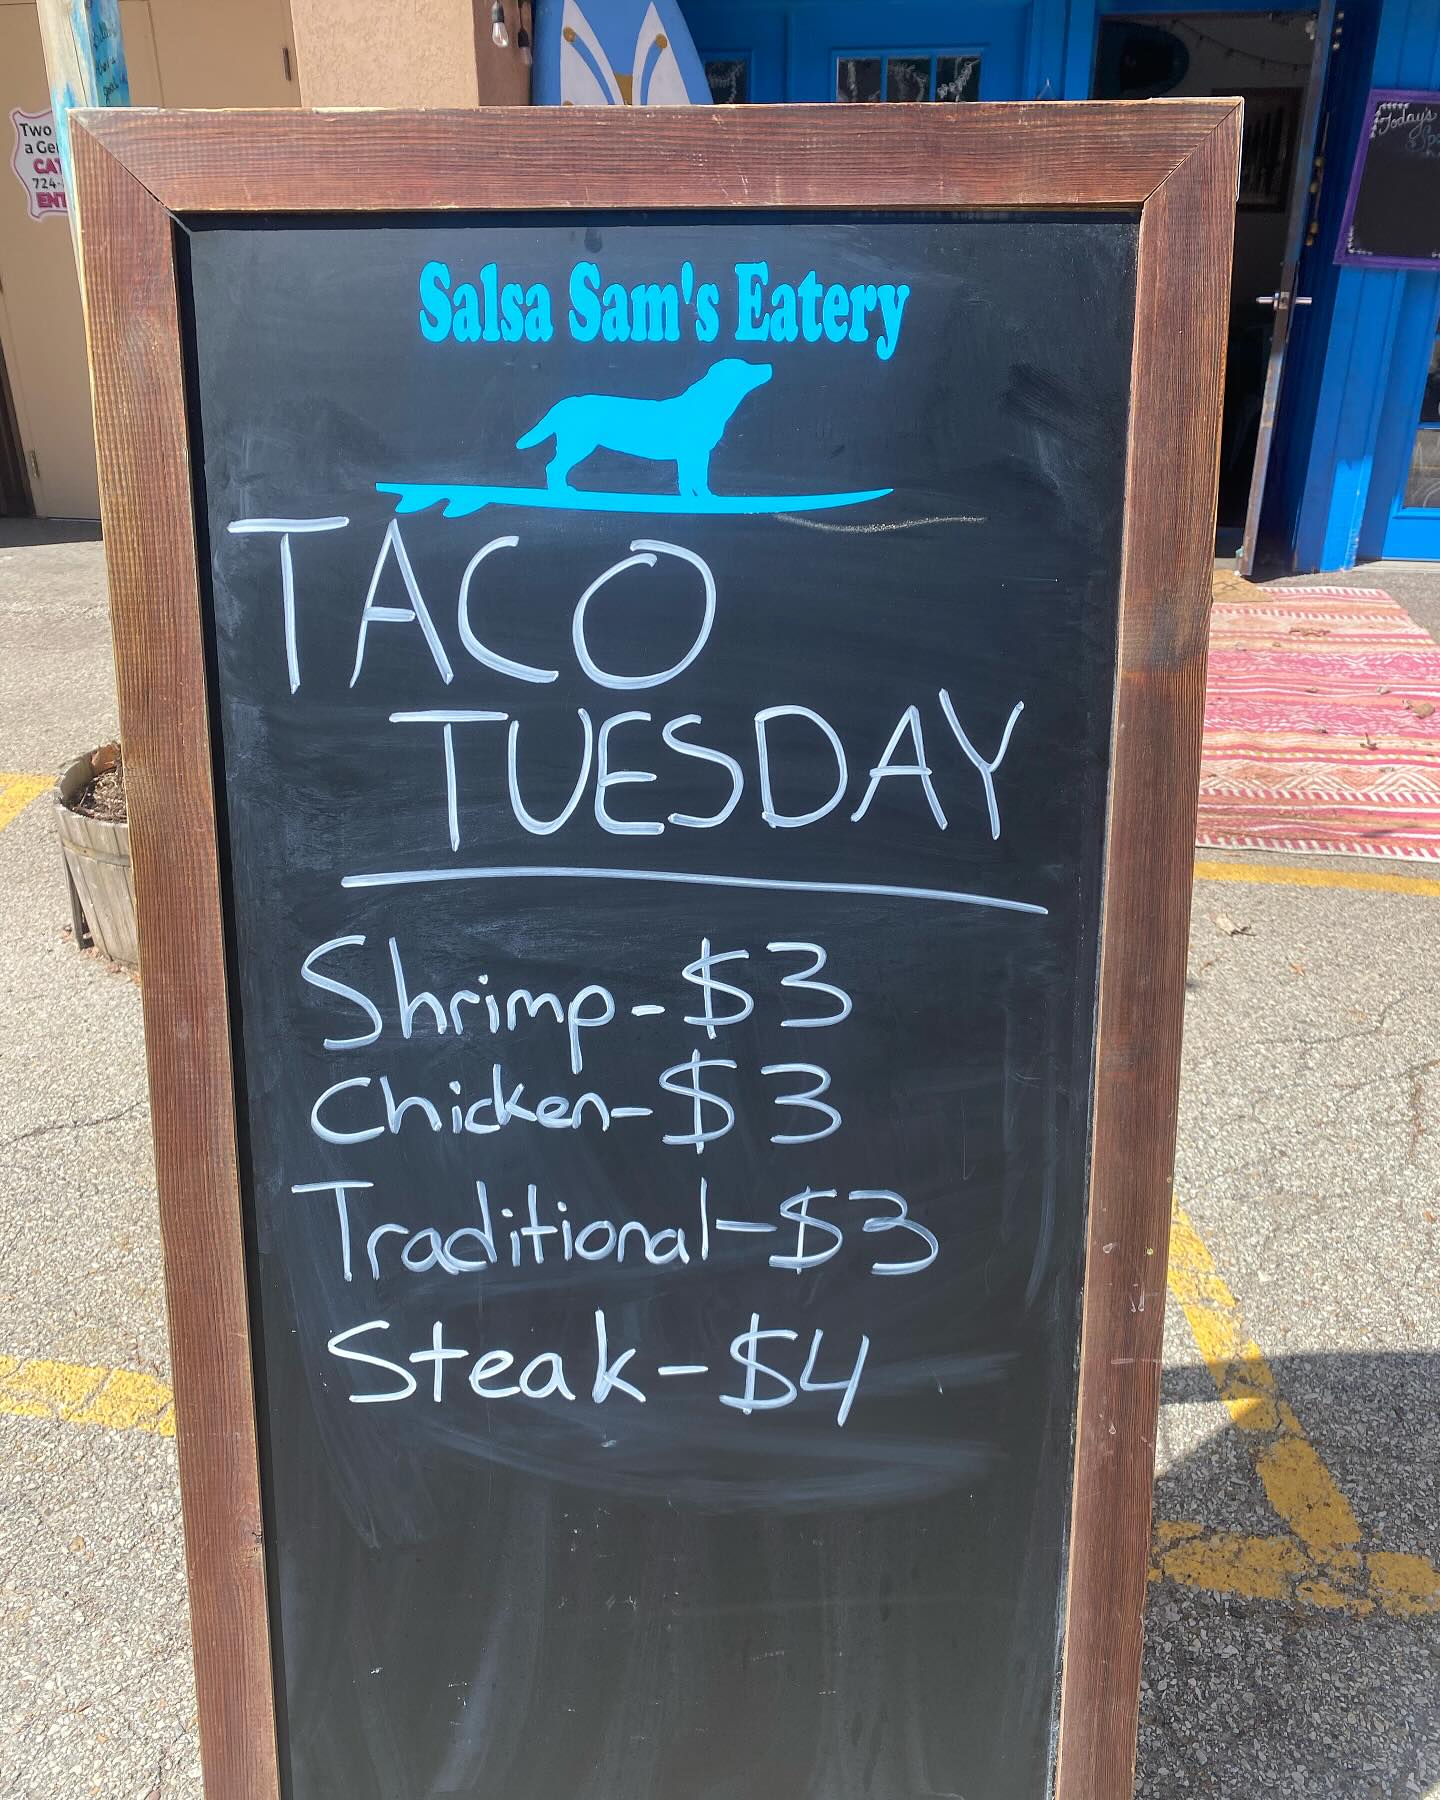 Two
a Ge
CAT
724-
ENT
Today's
Salsa Sam's Eatery
TACO
TUESDAY
Shrimp-$3
Chicken-$3
Traditional-$3
Steak-$4